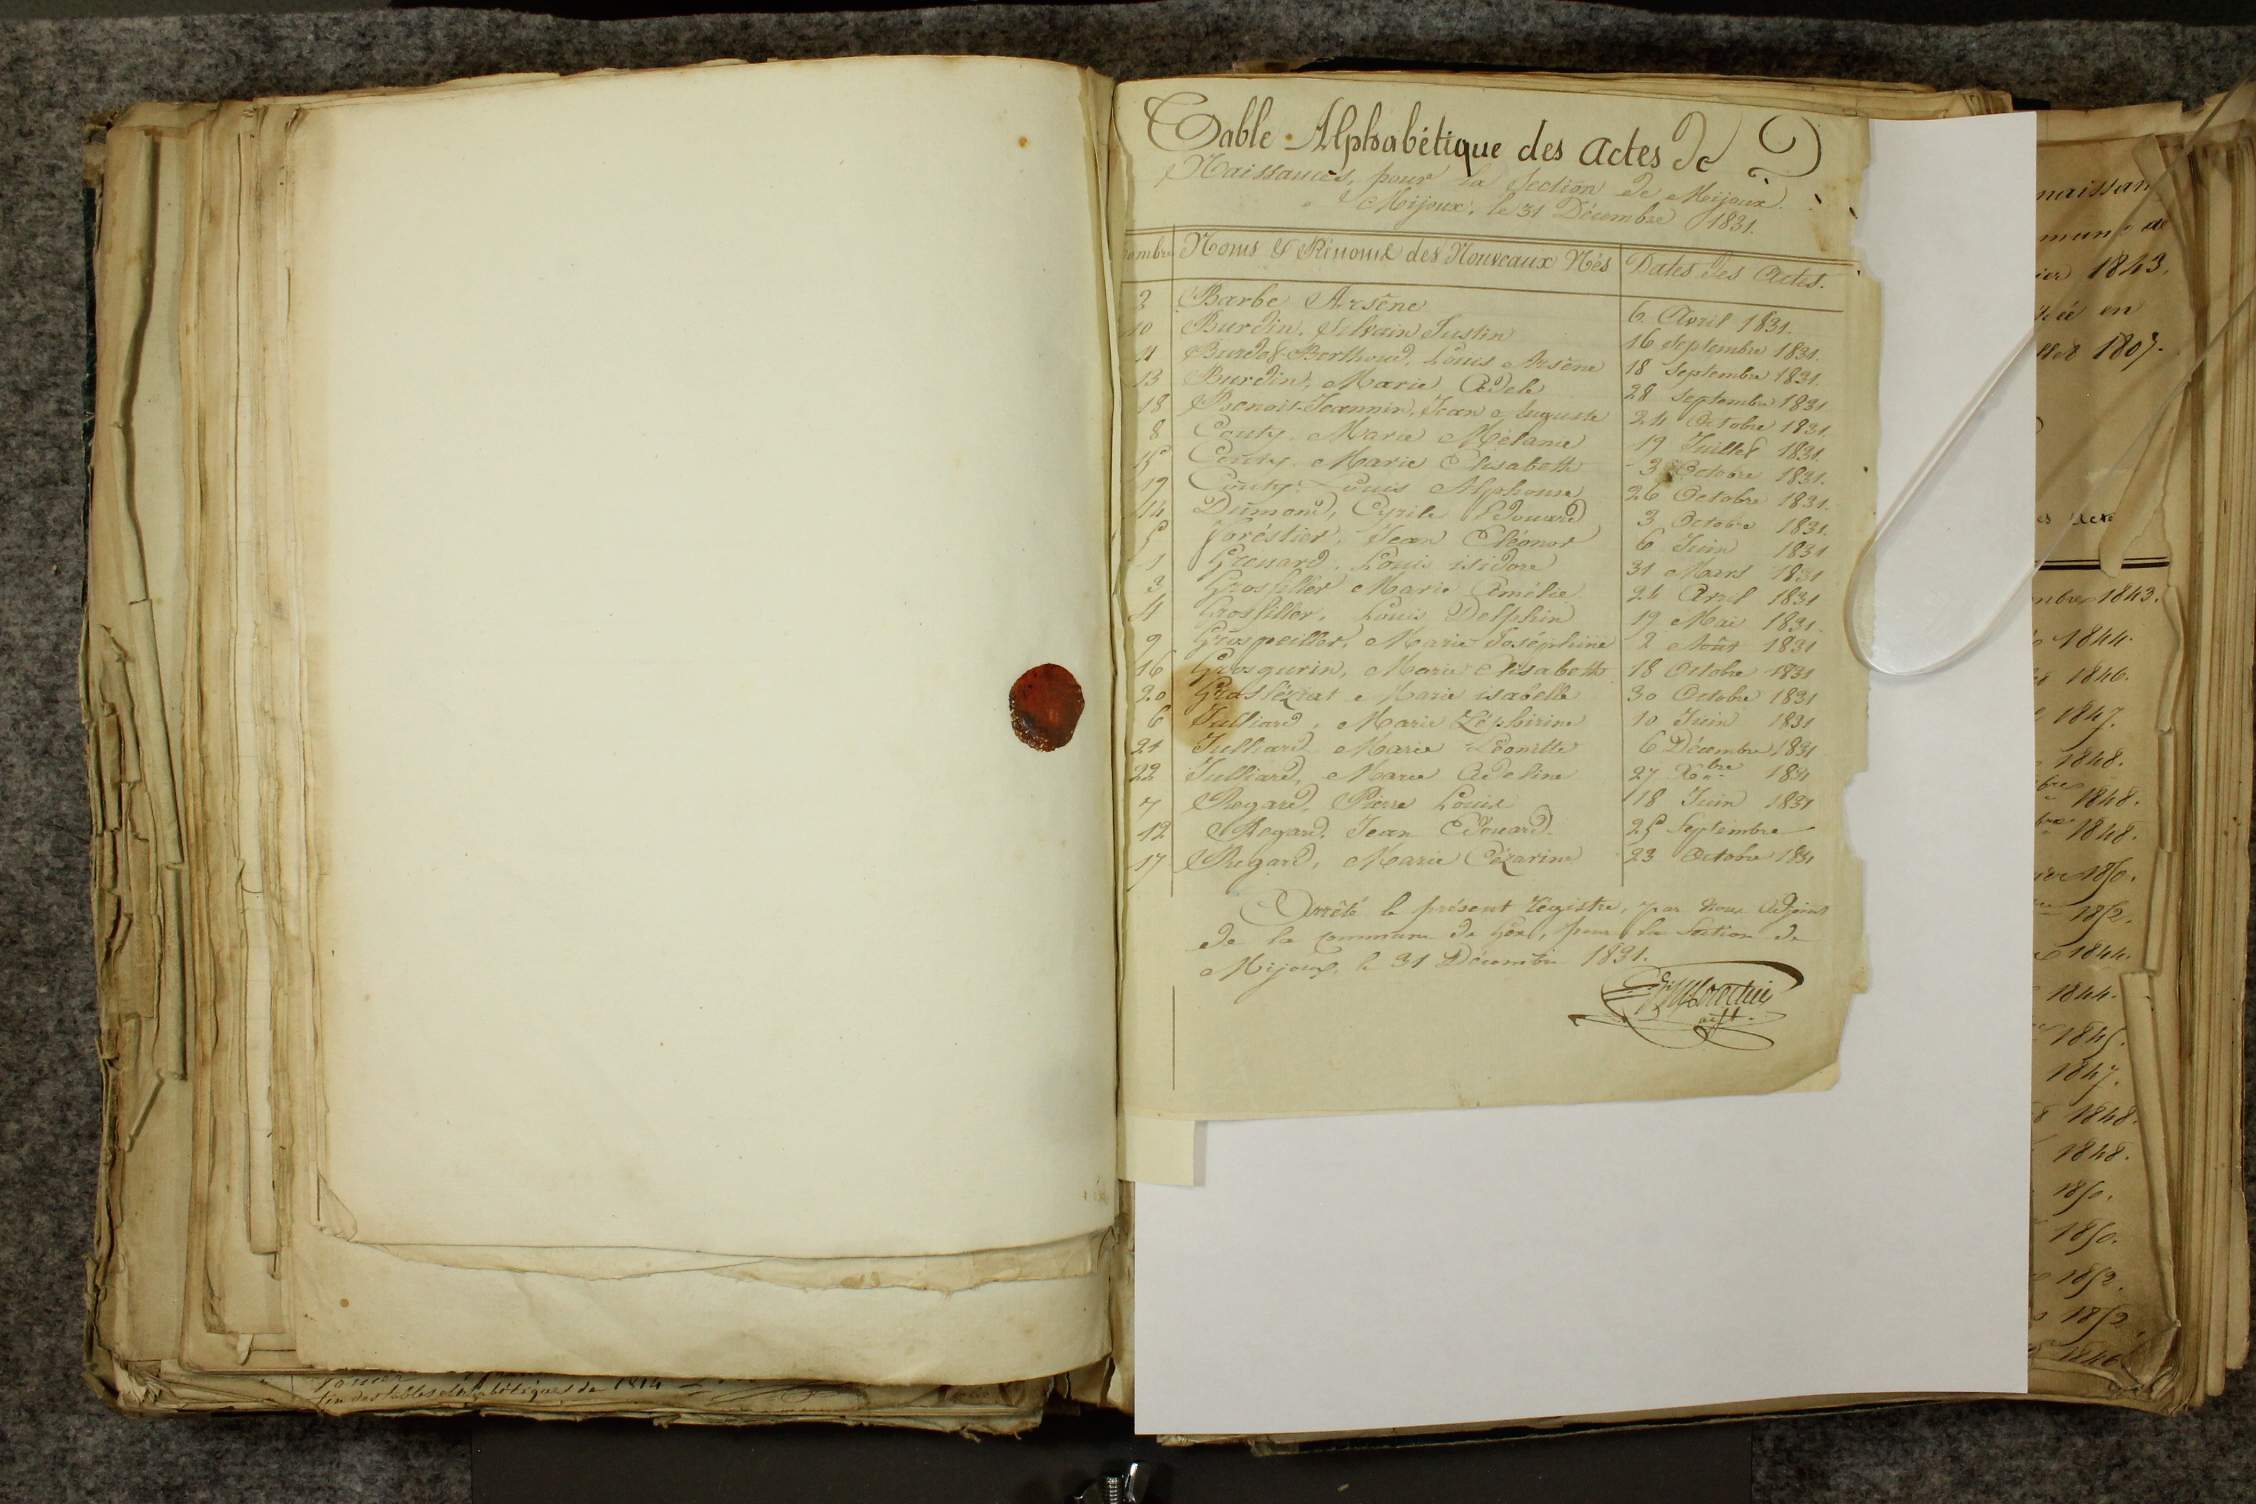 Table Alphabétique des actes de
Naissances, pour la Section de Mijoux.
Mijoux, le 31 Décembre 1831.
ombre Noms & Prénoms des Nouveaux Nés Dates des Actes.
2 Barbe Arsène 6 Avril 1831.
10 Burdin, Silvain Justin 16 septembre 1831.
11 Burdet-Berthoud, Louis Arsène 18 septembre 1831.
13 Burdin, Marie Adele 28 septembre 1831
18 Benoit-Jeannin, Jean Auguste 24 Octobre 1831.
8 Couty Marie Mélanie 19 Juillet 1831.
15 Couty Marie Elisabeth 3 Octobre 1831.
19 Couty Louis Alphonse 26 Octobre 1831.
14 Dumond, Cyrile Edouard 3 Octobre 1831.
5 Foréstier, Jean Eléonor 6 Juin 1831
1 Grenard, Louis isidore 31 Mars 1831
3 Grosfiller Marie Amélie 24 Avril 1831
4 Grosfiller, Louis Delphin 19 Mai 1831.
9 Grospeiller, Marie Joséphine 2 Août 1831
16 Grosgurin, Marie Elisabeth 18 Octobre 1831
20 Groslézrat Marie isabelle 30 Octobre 1831
6 Julliard, Marie Zéphirine 10 Juin 1831
21 Julliard Marie Léonille 6 Décembre 1831
22 Julliard, Marie Adeline 27 Xbre 1831
7 Regard, Pierre Louis 18 Juin 1831
12 Regard, Jean Edouard 25 Septembre
17 Regard, Marie Cézarine 23 Octobre 1831
Arrêté le présent régistre, par Nous Adjoint
de la commune de Gex, pour la Section de
Mijoux, le 31 Décembre 1831.
adjt.
fin des tables alphabétiques de 1814
naissan
mune de
ier 1843.
en
1807.
mbre 1843.
1844.
1846.
1847.
1848.
bre 1848.
bre 1848.
1850.
1852.
1844.
1844.
1845.
1847.
1848.
1848.
1850.
1850.
1852.
1852.
1846